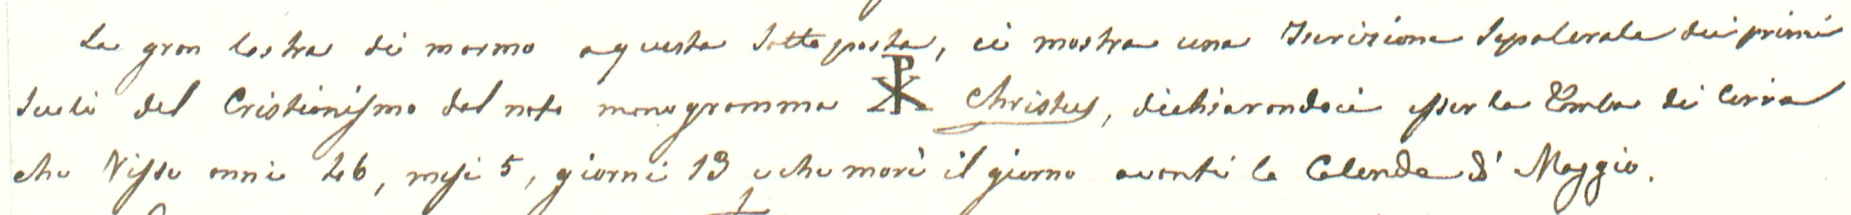 La gran lastra di marmo a questa sottoposta, ci mostra una Iscrizione Sepolcrale dei primi
secoli del Cristianismo dal noto monogramma ☧ Christus, dichiarandoci esser la Tomba di Ciria
che Visse anni 26, mesi 5, giorni 13 e che morì il giorno avanti le Calende d' Maggio.